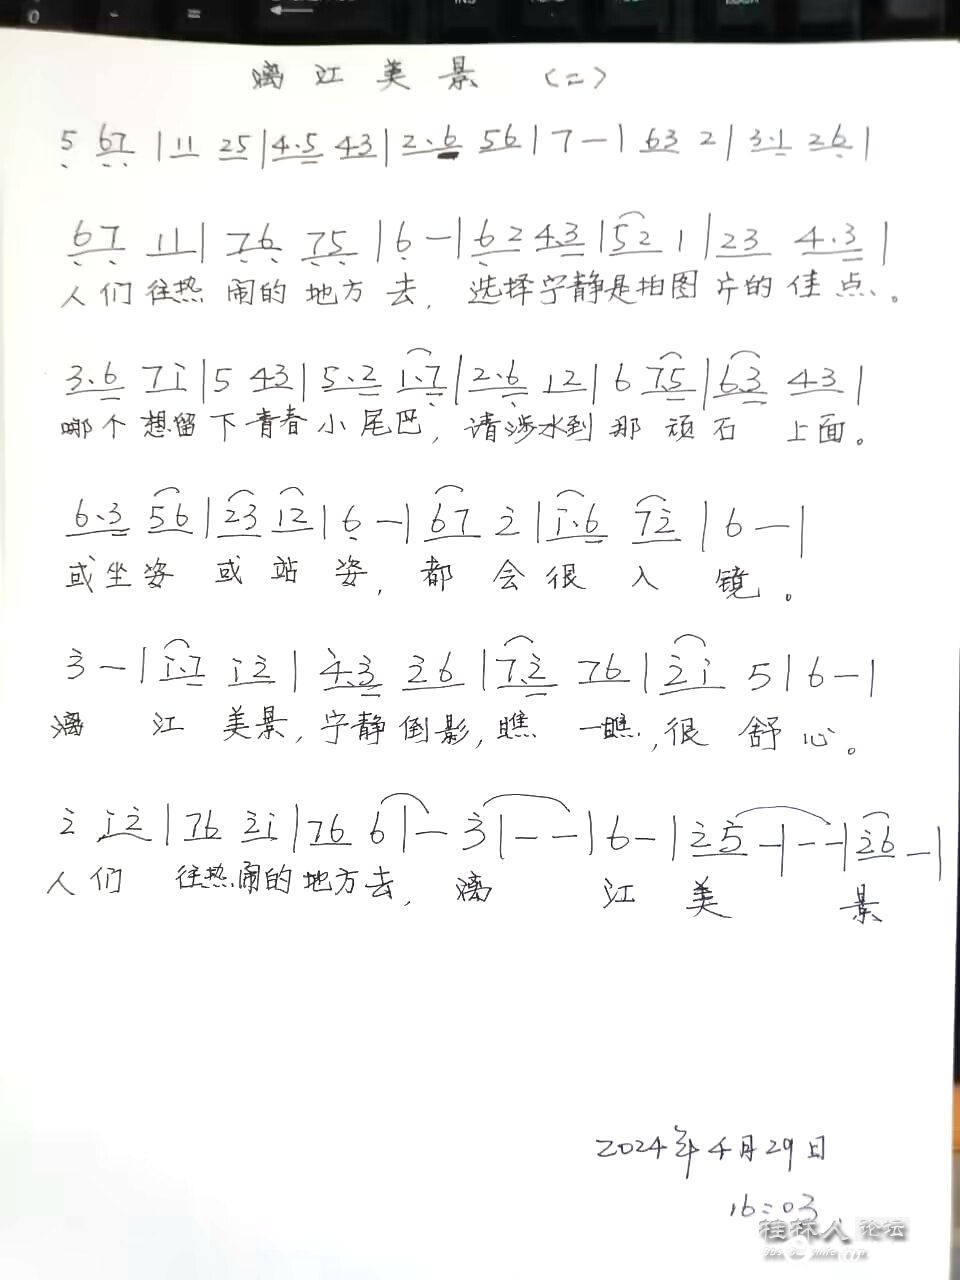 漓江美景 (二)
5 67 | 11 25 | 4·5 43 | 2·6 56 | 7 — | 63 2 | 3·1 26 |
67 11 | 76 75 | 6 — | 62 4·3 | 52 1 | 23 4·3 |
人们往热闹的地方去，选择宁静是拍图片的佳点。
3·6 7i | 5 43 | 5·2 1·7 | 2·6 12 | 6 7·5 | 6·3 43 |
哪个想留下青春小尾巴，请涉水到那顽石上面。
6·3 56 | 23 12 | 6 — | 67 2 | i·6 72 | 6 — |
或坐姿或站姿，都会很入镜。
3 — | i·7 i2 | 4·3 26 | 7·2 76 | 2i 5 | 6 — |
漓江美景，宁静倒影，瞧一瞧，很舒心。
2 i2 | 76 2i | 76 6 | — 3 | — — | 6 — | 25 — | — — | 26 — |
人们往热闹的地方去，漓江美景
2024年4月29日
16:03
桂林人论坛